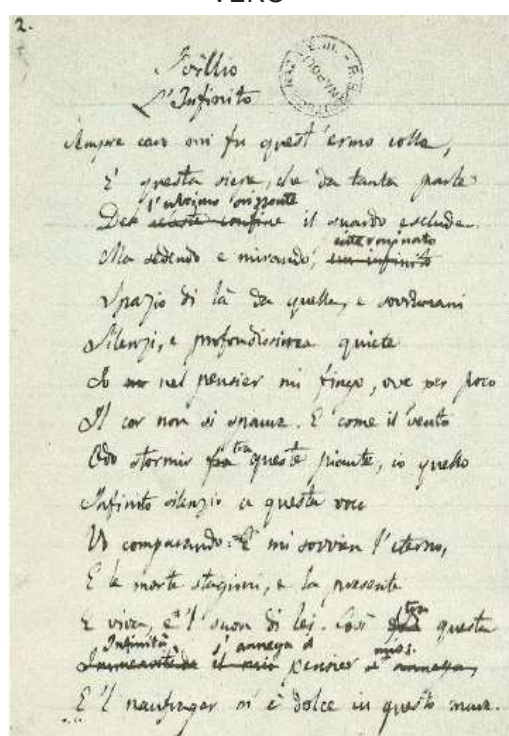 2.
Idillio
L'Infinito
Sempre caro mi fu quest'ermo colle,
E questa siepe, che da tanta parte
l'ultimo orizzonte
Del celeste confine il guardo esclude.
interminato
Ma sedendo e mirando, un infinito
Spazio di là da quella, e sovrumani
Silenzi, e profondissima quiete
Io nel pensier mi fingo, ove per poco
Il cor non si spaura. E come il vento
tra
Odo stormir fra queste piante, io quello
Infinito silenzio a questa voce
Vo comparando: E mi sovvien l'eterno,
E le morte stagioni, e la presente
tra
E viva, e 'l suon di lei. Così fra questa
Infinità s'annega il mio
Immensitade il mio pensier s'annega,
E 'l naufragar m'è dolce in questo mare.